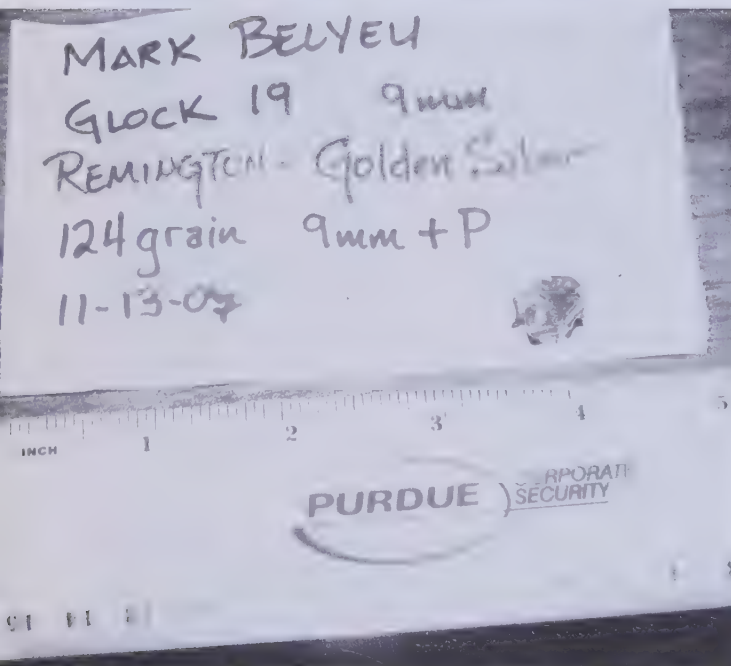 MARK BELYEU
GLOCK 19 9mm
REMINGTON - Golden Saber
124 grain 9mm + P
11-13-07
1 2 3 4 5
INCH
PURDUE RPORATI
SECURITY